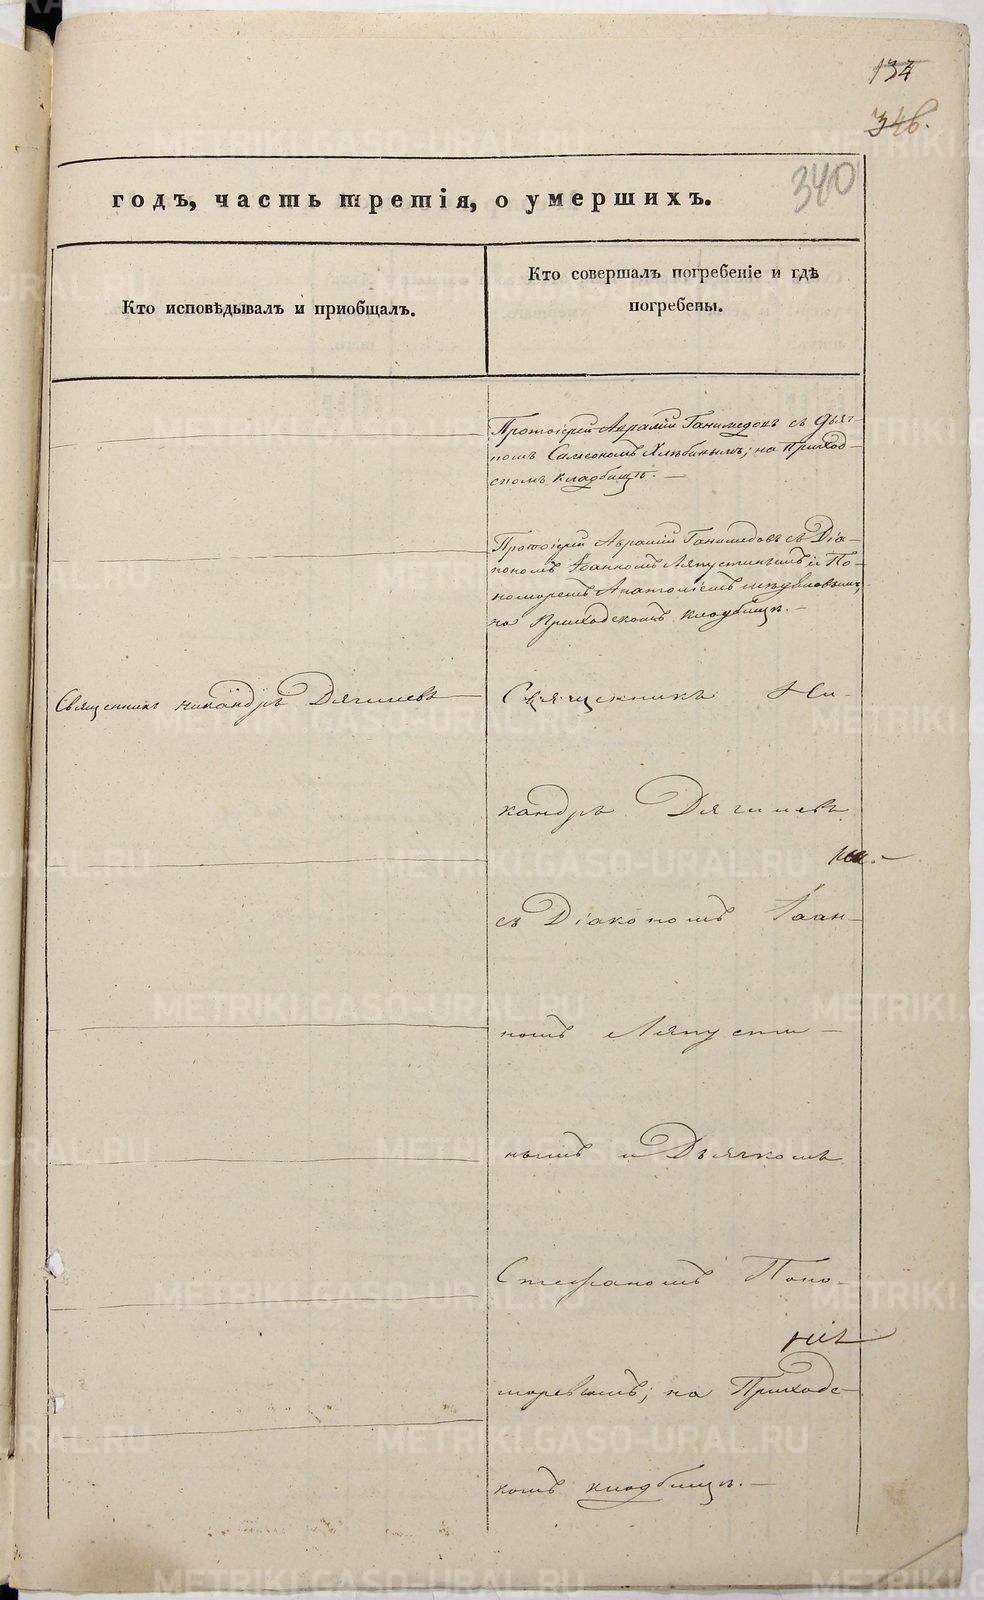 134
346.
340
годъ, часть третія, о умершихъ.
Кто исповѣдывалъ и приобщалъ.
Кто совершалъ погребеніе и гдѣ
погребены.
Протоіерей Аврамій Ганимедовъ съ Дьяч-
комъ Симеономъ Хлѣбинымъ; на Приход-
скомъ кладбищѣ. —
Протоіерей Аврамій Ганимедовъ съ Діа-
кономъ Іоанномъ Ляпустинымъ и По-
номаремъ Анатоліемъ
на Приходскомъ кладбищѣ. —
Священникъ Никандръ Дягилевъ
Священникъ Ни-
кандръ Дягилевъ
съ Діакономъ Іоан-
номъ Ляпусти-
нымъ и Дьячкомъ
Стефаномъ Поно-
маревымъ; на Приходс-
комъ кладбищѣ. —
METRIKI.GASO-URAL.RU